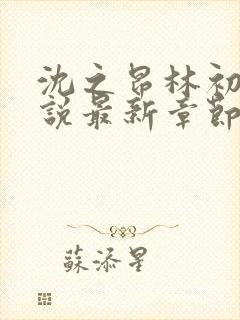 沈之昂林初
說最新章節
蘇添星